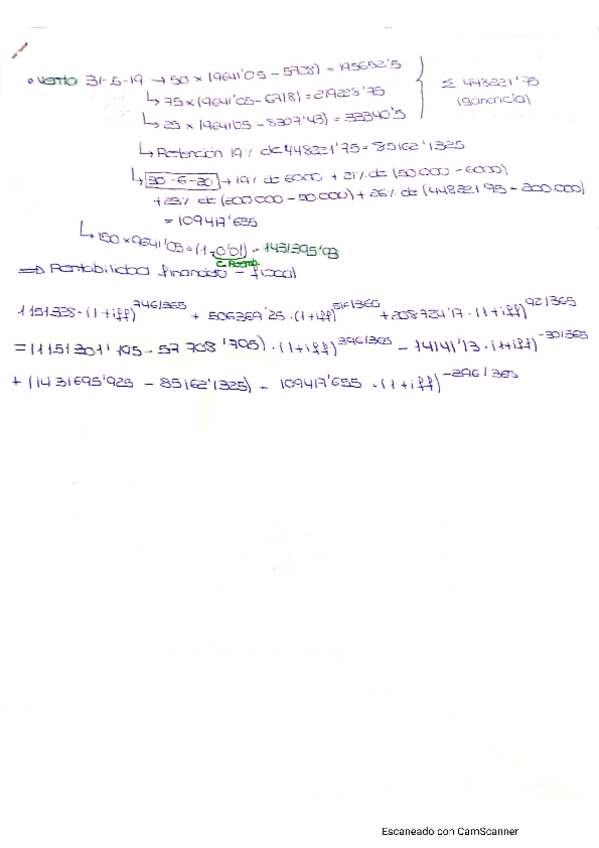 • Venta 31-5-19 → 50 x (9641'05 - 5728) = 195652'5
↳ 75 x (9641'05 - 6718) = 219228'75
↳ 25 x (9641'05 - 8307'43) = 33340'5
Σ 448221'75
(ganancia)
↳ Retención 19% de 448221'75 = 85162'1325
↳ 30-6-20 → 19% de 6000 + 21% de (50.000 - 6000)
+ 23% de (200.000 - 50.000) + 26% de (448221'75 - 200.000)
= 109417'655
↳ 150 x 9641'05 · (1 - 0'01) = 1431395'93
⇒ Rentabilidad financiero - fiscal
1151328 · (1+iff)^746/365 + 506369'25 · (1+iff)^516/365 + 208724'17 · (1+iff)^921/365
= (1151301'195 - 57708'1795) · (1+iff)^396/365 - 14141'13 · (1+iff)^-30/365
+ (1431695'925 - 85162'1325) - 109417'655 · (1+iff)^-396/365
Escaneado con CamScanner